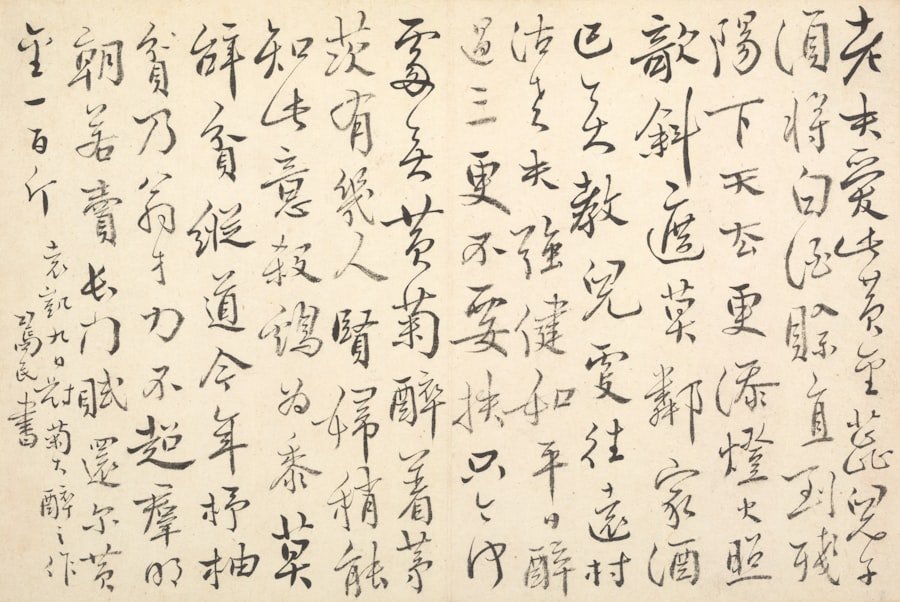 老夫愛此黃金蕊兒子
須將白酒賒直到殘
陽下天去更添燈火照
欹斜遮莫鄰家酒
已无教兒更往遠村
沽老夫強健和平日醉
過三更不要扶只今何
處无黃菊醉着茅
茨有幾人賢婦稍能
知此意殺鷄為黍莫
辭貧縱道今年杼柚
貧乃翁才力不超羣明
朝若賣長門賦還尔黃
金一百斤
袁凱九日對菊大醉之作
民書